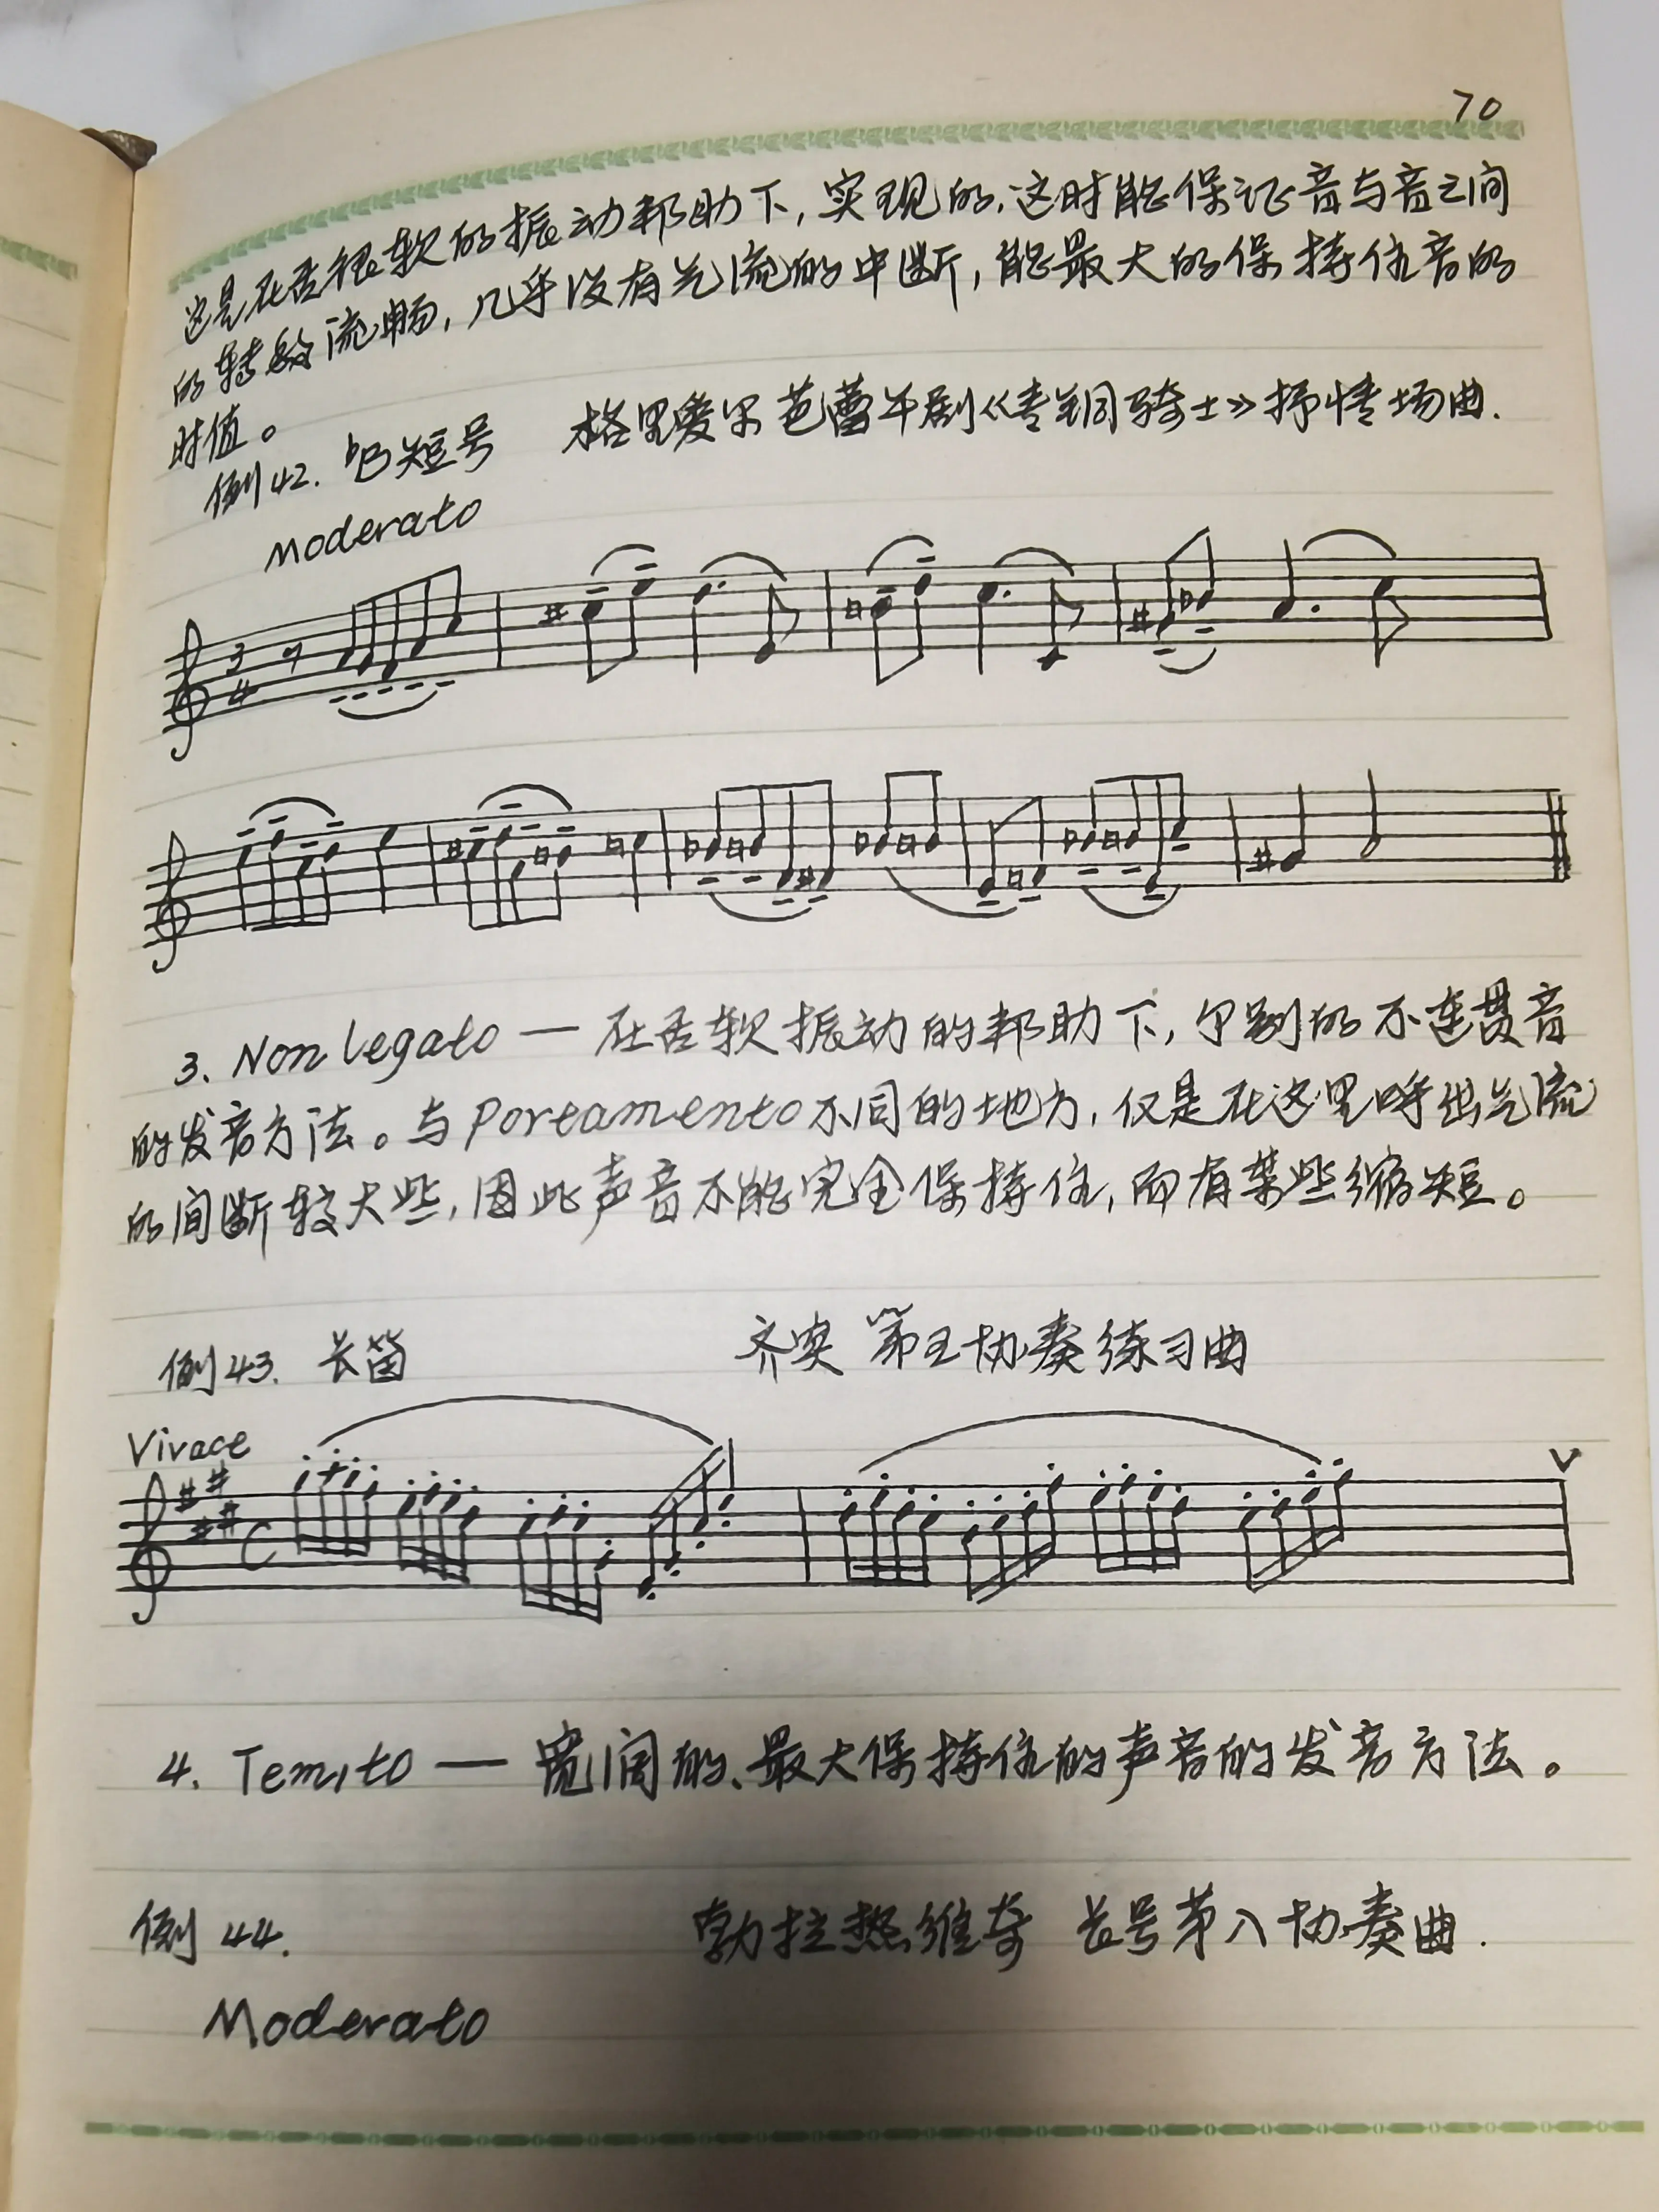 70
这是在舌很软的振动帮助下,实现的,这时能保证音与音之间
的转换流畅,几乎没有气流的中断,能最大的保持住音的
时值。
例42. ♭B短号 格里爱尔芭蕾午剧《青铜骑士》抒情场曲.
Moderato
3
4
3. Non legato — 在舌软振动的帮助下,个别的不连贯音
的发音方法。与Portamento不同的地方,仅是在这里呼出气流
的间断较大些,因此声音不能完全保持住,而有某些缩短。
例43. 长笛 齐宾 第五协奏练习曲
Vivace
C
V
4. Temito — 宽阔的、最大保持住的声音的发音方法。
例44. 勃拉热维奇 长号第八协奏曲.
Moderato